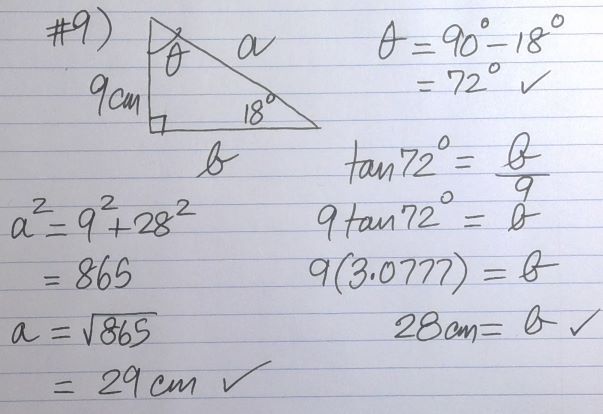 #9)
θ
a
9cm
18°
b
θ = 90° - 18°
= 72° ✓
tan 72° = b/9
9 tan 72° = b
9(3.0777) = b
28cm = b ✓
a² = 9² + 28²
= 865
a = √865
= 29 cm ✓